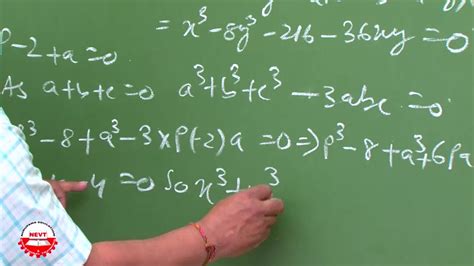 = x³ - 8y³ - 216 - 36xy = 0
P - 2 + a = 0
As a + b + c = 0 a³ + b³ + c³ - 3abc = 0
³ - 8 + a³ - 3 × P(-2)a = 0 ⇒ P³ - 8 + a³ + 6Pa
y = 0 So x³ + y³
NEVT